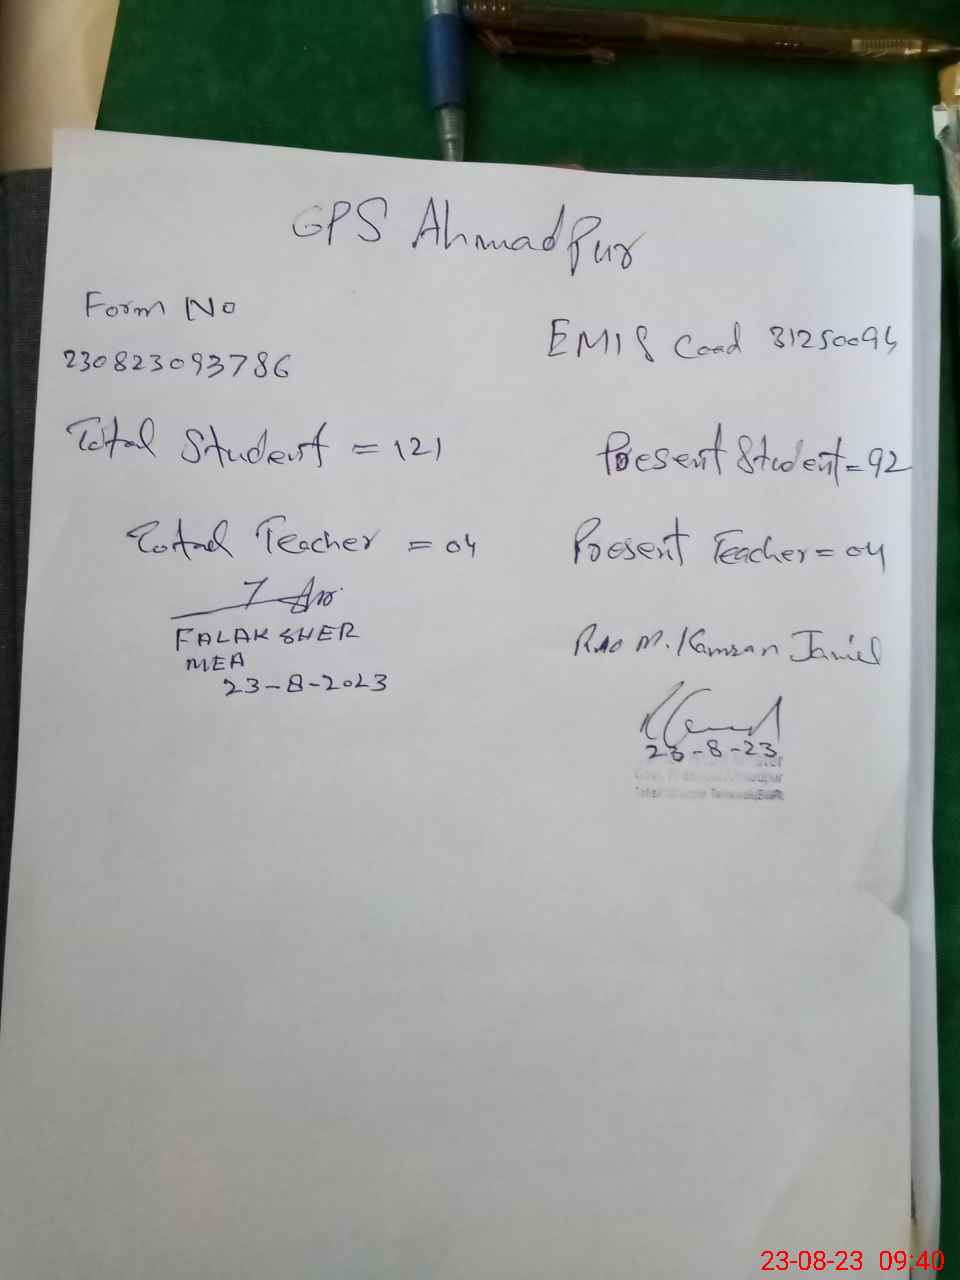 GPS Ahmad Pur
Form No
230823093786
EMIS Coad 31250094
Total Student = 121
Present Student = 92
Total Teacher = 04
Present Teacher = 04
FALAK SHER
MEA
23-8-2023
Rao M. Kamran Jamiel
23-8-23
23-08-23 09:40